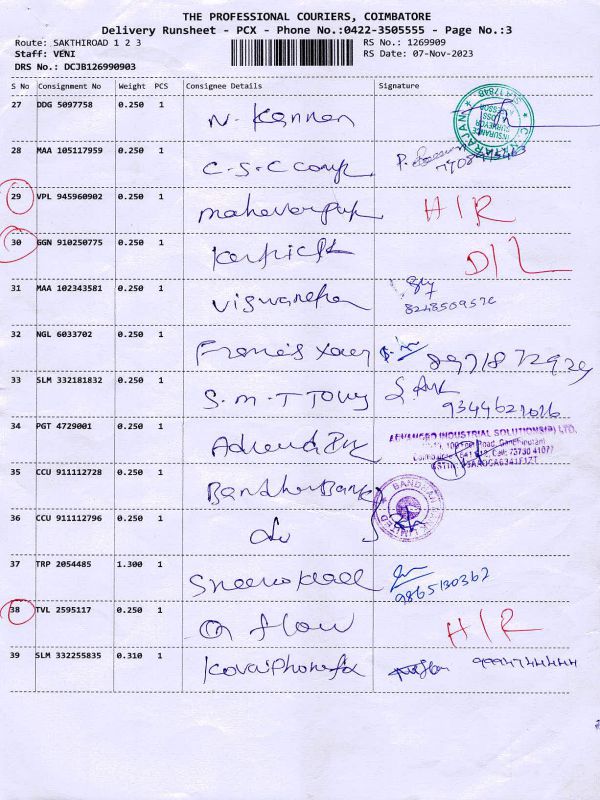 THE PROFESSIONAL COURIERS, COIMBATORE
Delivery Runsheet - PCX - Phone No.:0422-3505555 - Page No.:3
Route: SAKTHIROAD 1 2 3
RS No.: 1269909
Staff: VENI
RS Date: 07-Nov-2023
DRS No.: DCJB126990903
S No Consignment No Weight PCS Consignee Details Signature
27 DDG 5097758 0.250 1 N. Kannan
INSURANCE SURVEYOR LOSS
28 MAA 105117959 0.250 1 C.S.C Comp
29 VPL 945960902 0.250 1 H/R
30 GGN 910250775 0.250 1 D/L
31 MAA 102343581 0.250 1 Viswanathan
8248509576
32 NGL 6033702 0.250 1 Francis Xavier
33 SLM 332181832 0.250 1 S.M.T Tony
9344621016
34 PGT 4729001 0.250 1
INDUSTRIAL SOLUTIONS(P) LTD,
100 Feet Road, Gandhipuram
Cell: 73730 41077
35 CCU 911112728 0.250 1 Bandhan Bank
BANDHAN BANK LIMITED
36 CCU 911112796 0.250 1 do
37 TRP 2054485 1.300 1
9865130362
38 TVL 2595117 0.250 1 flow H/R
39 SLM 332255835 0.310 1 Kovai Phonefix